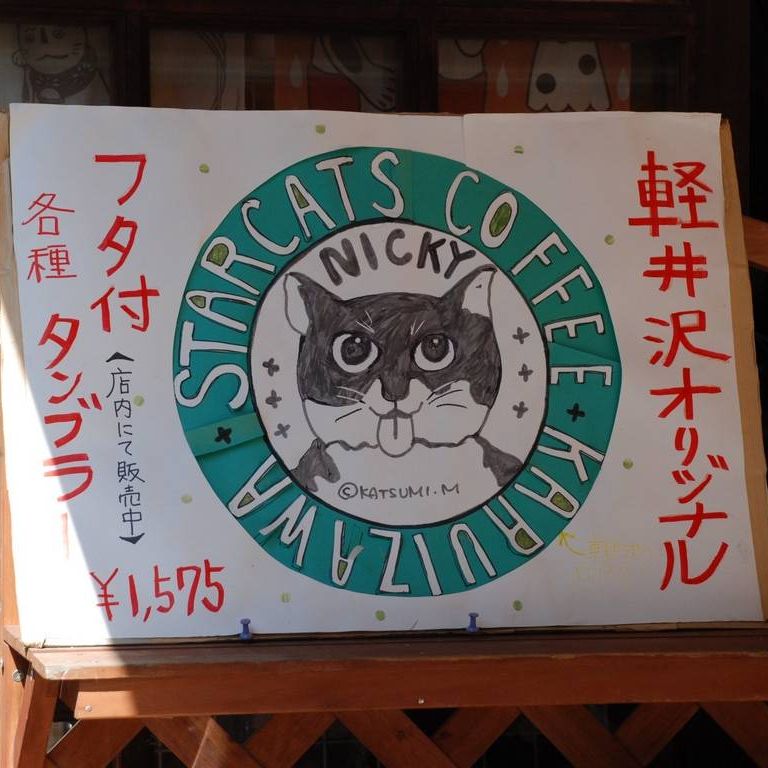 軽井沢オリジナル
STARCATS COFFEE
KARUIZAWA
NICKY
©KATSUMI.M
フタ付
《店内にて販売中》
各種
タンブラー
¥1,575